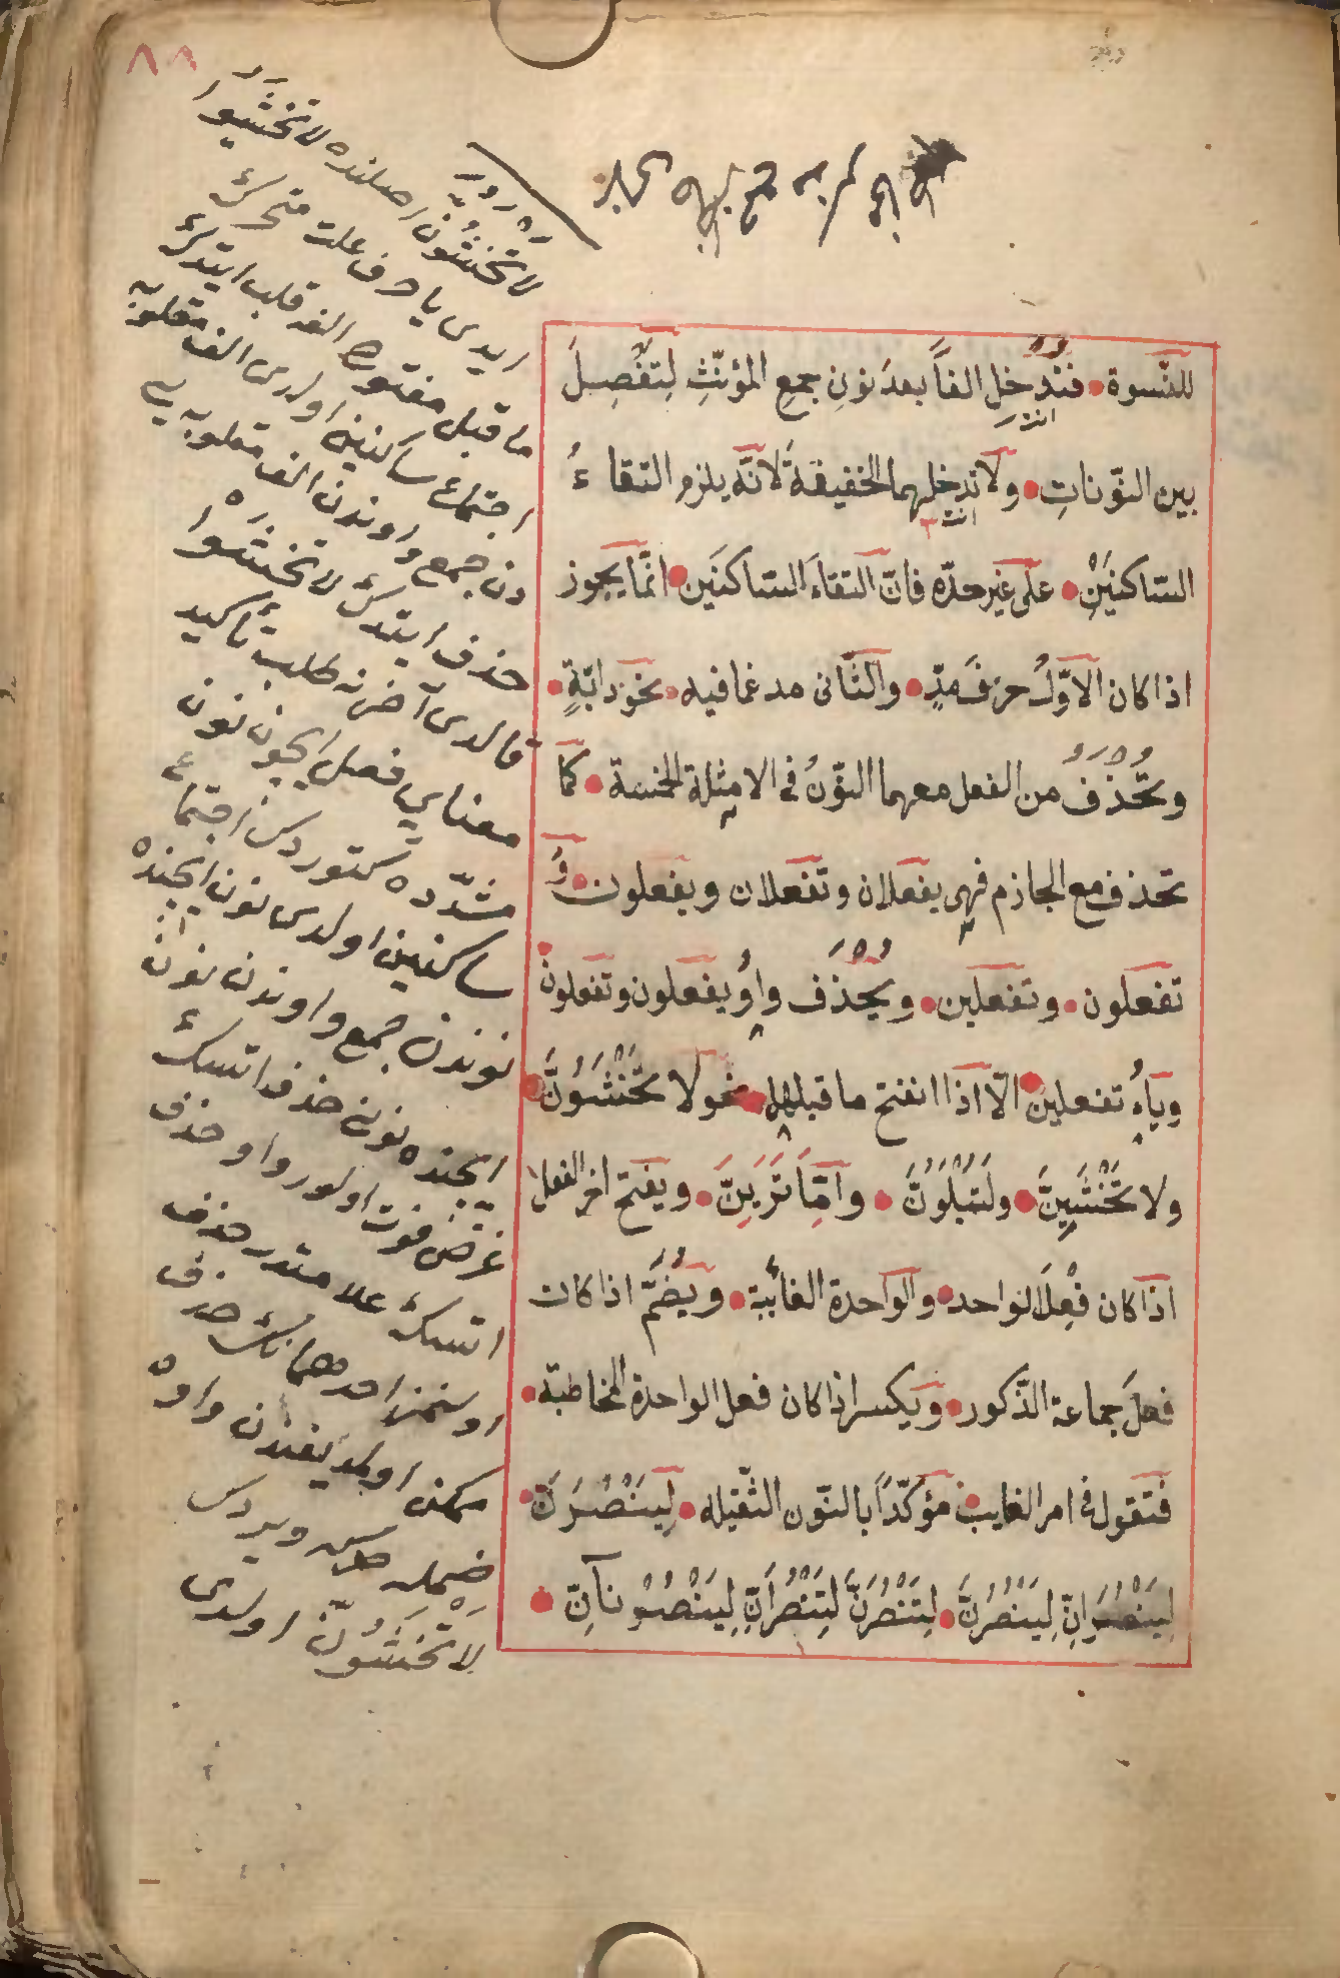 ٨٨
للنّسوة فتُدْخل الفاً بعدَ نونِ جمعِ المؤنّثِ لِتَفْصِلَ
انت
بين النّوناتِ ولا تدخلهما الخفيفةُ لانّه يلزم التقاءُ
انت
السّاكنَيْنِ على غيرِ حدّه فانّ التقاءَ السّاكنَين انّما يجوز
اذا كان الاوّلُ حرفَ مدٍّ والثّانى مدغما فيه نحوَ دابّةٍ
وتُحْذَفُ من الفعل معهما النّونُ فى الامثلة الخمسة كما
تحذف مع الجازم فهى يفعلان وتفعلان ويفعلون وَ
تفعلون وتفعلين ويُحْذَف واوُ يفعلون وتفعلون
وياءُ تفعلين الّا اذا انفتح ما قبلهما نحو لا تَخْشَوُنَّ
ولا تَخْشَيِنَّ ولَتُبْلَوُنَّ وامّا تَرَيِنَّ ويفتح اخر الفعل
اذا كان فِعْلَ الواحد والواحدة الغائبة ويُضَمُّ اذا كان
فعلَ جماعة الذّكور ويكسر اذا كان فعل الواحدة المخاطبة
فتقول فى امر الغايب مؤكّداً بالنّون الثّقيله لِيَنْصُرَنَّ
لِيَنْصُرَانِّ لِيَنْصُرُنَّ لِتَنْصُرَنَّ لِتَنْصُرَانِّ لِيَنْصُرْنانِّ
لا تخشَوُنَّ اصلنده لا تخشَيُوا
ايدى يا حرف علت متحرك
ما قبلى مفتوح الفه قلب ايتدك
اجتماع ساكنين اولدى الف مقلوبه
دن جمع واوندن الف مقلوبه يى
حذف ايتدك لا تخشَوْا
قالدى آخرنه طلب تأكيد
معنايى فصل ايچون نون
مشدّده كتوردك اجتماع
ساكنين اولدى نون ايچنده
نوندن جمع واوندن نون
ايچنده نونى حذف اتسك
غرض فوت اولور واو حذف
اتسك علامتدر حذف
اولنمز احدهمانك حذف
ممكن اولمديغندن واوه
ضمله حركه ويردك
لا تَخْشَوُنَّ اولدى